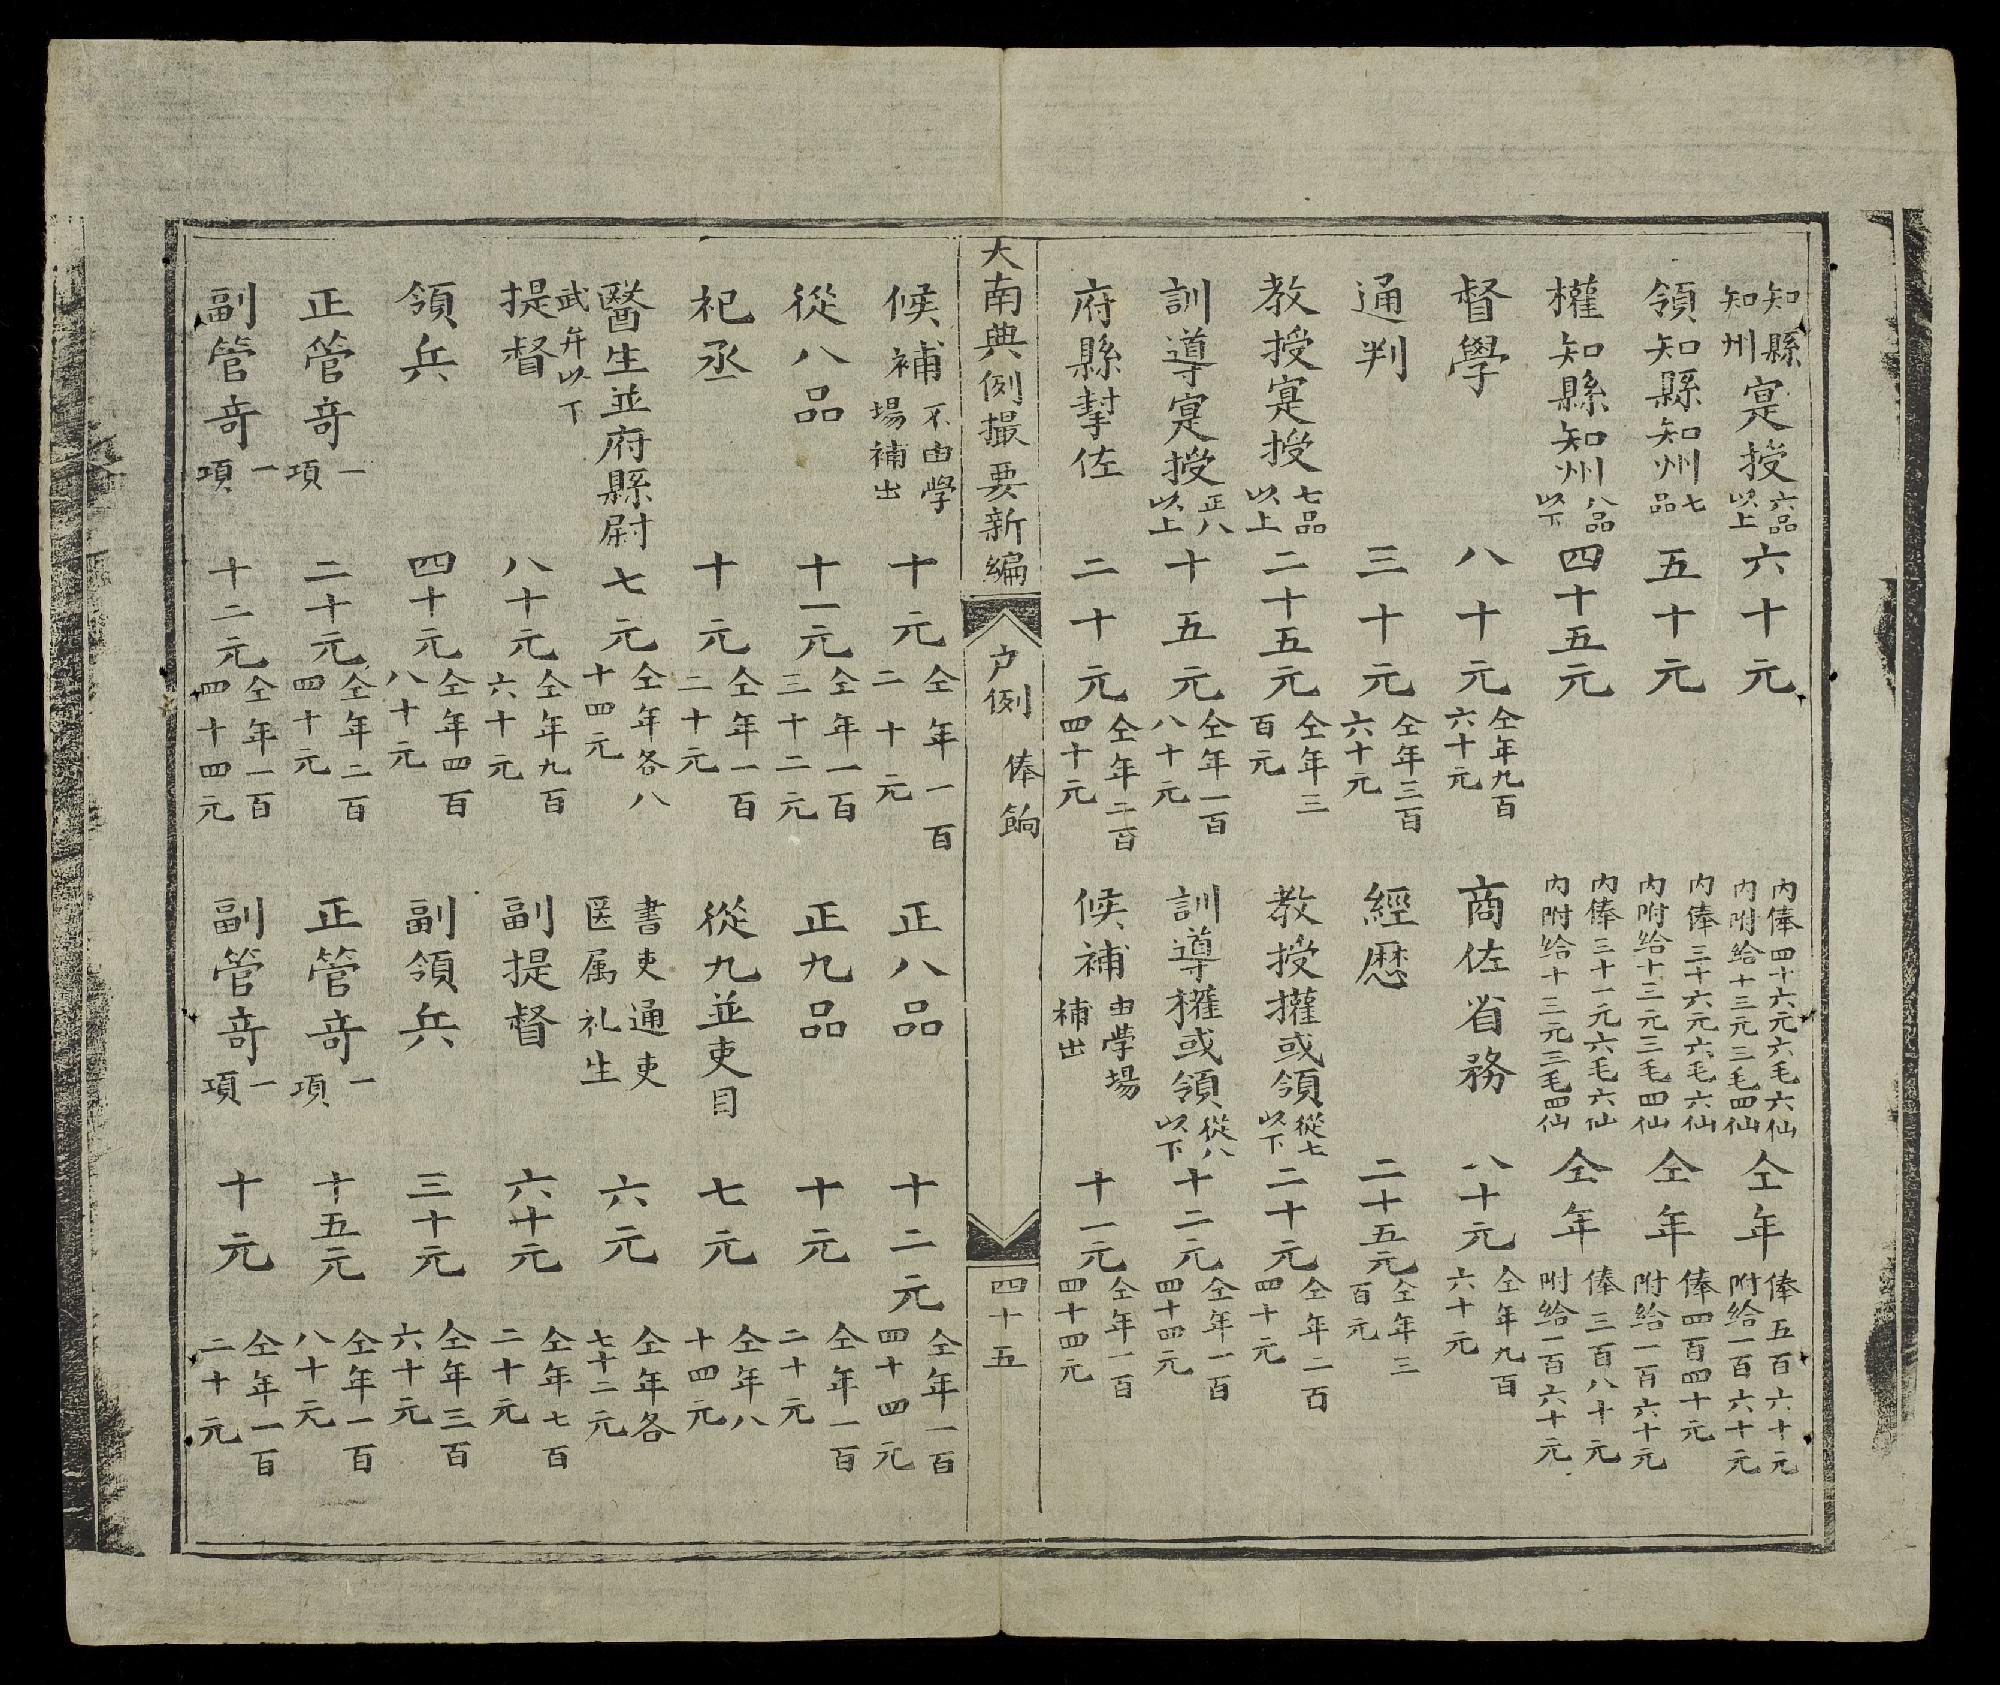 知縣知州寔授六品以上六十元內俸四十六元六毛六仙內附給十三元三毛四仙仝年俸五百六十元附給一百六十元
領知縣知州七品五十元內俸三十六元六毛六仙內附給十三元三毛四仙仝年俸四百四十元附給一百六十元
權知縣知州八品以下四十五元內俸三十一元六毛六仙內附給十三元三毛四仙仝年俸三百八十元附給一百六十元
督學八十元仝年九百六十元商佐省務八十元仝年九百六十元
通判三十元仝年三百六十元經歷二十五元仝年三百元
教授寔授七品以上二十五元仝年三百元教授權或領從七以下二十元仝年一百四十元
訓導寔授正八以上十五元仝年一百八十元訓導權或領從八以下十二元仝年一百四十四元
府縣掔佐二十元仝年二百四十元候補由學場補出十一元仝年一百四十四元
大南典例撮要新編 户例 俸餉 四十五
候補不由學場補出十元仝年一百二十元正八品十二元仝年一百四十四元
從八品十一元仝年一百三十二元正九品十元仝年一百二十元
祀丞十元仝年一百二十元從九並吏目七元仝年八十四元
醫生並府縣尉七元仝年各八十四元書吏通吏医属礼生六元仝年各七十二元
武弁以下
提督八十元仝年九百六十元副提督六十元仝年七百二十元
領兵四十元仝年四百八十元副領兵三十元仝年三百六十元
正管奇一項二十元仝年二百四十元正管奇一項十五元仝年一百八十元
副管奇一項十二元仝年一百四十四元副管奇一項十元仝年一百二十元